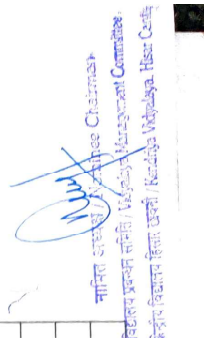 नामित अध्यक्ष / Nominee Chairman
विद्यालय प्रबन्धन समिति / Vidyalaya Management Committee,
केन्द्रीय विद्यालय हिसार छावनी / Kendriya Vidyalaya Hisar Cantt.